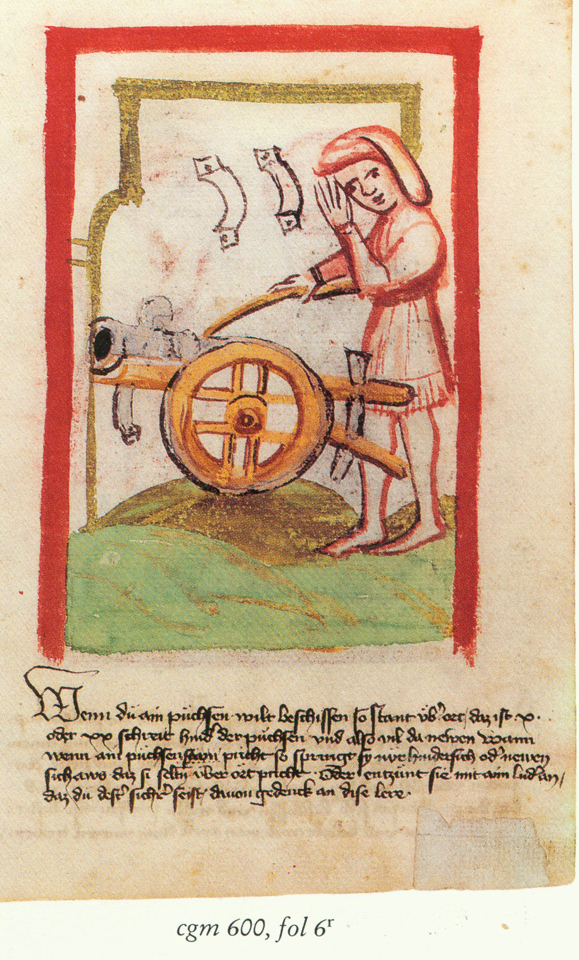 Wenn dü ain püchsen wilt beschissen so stant vb̾ oꝛt daz ist x.
oder xx schreit hind̾ der püchsen vnd also vil da newen wann
wenn ain püchsen pricht so springt sy nwr hindersich od̾ newen
sich daz si seltn vber oꝛt pricht. oder entzünt sie mit ain
daz du dest̾ sich̾ seist dauon gedenck an dise lere.
cgm 600, fol 6ʳ